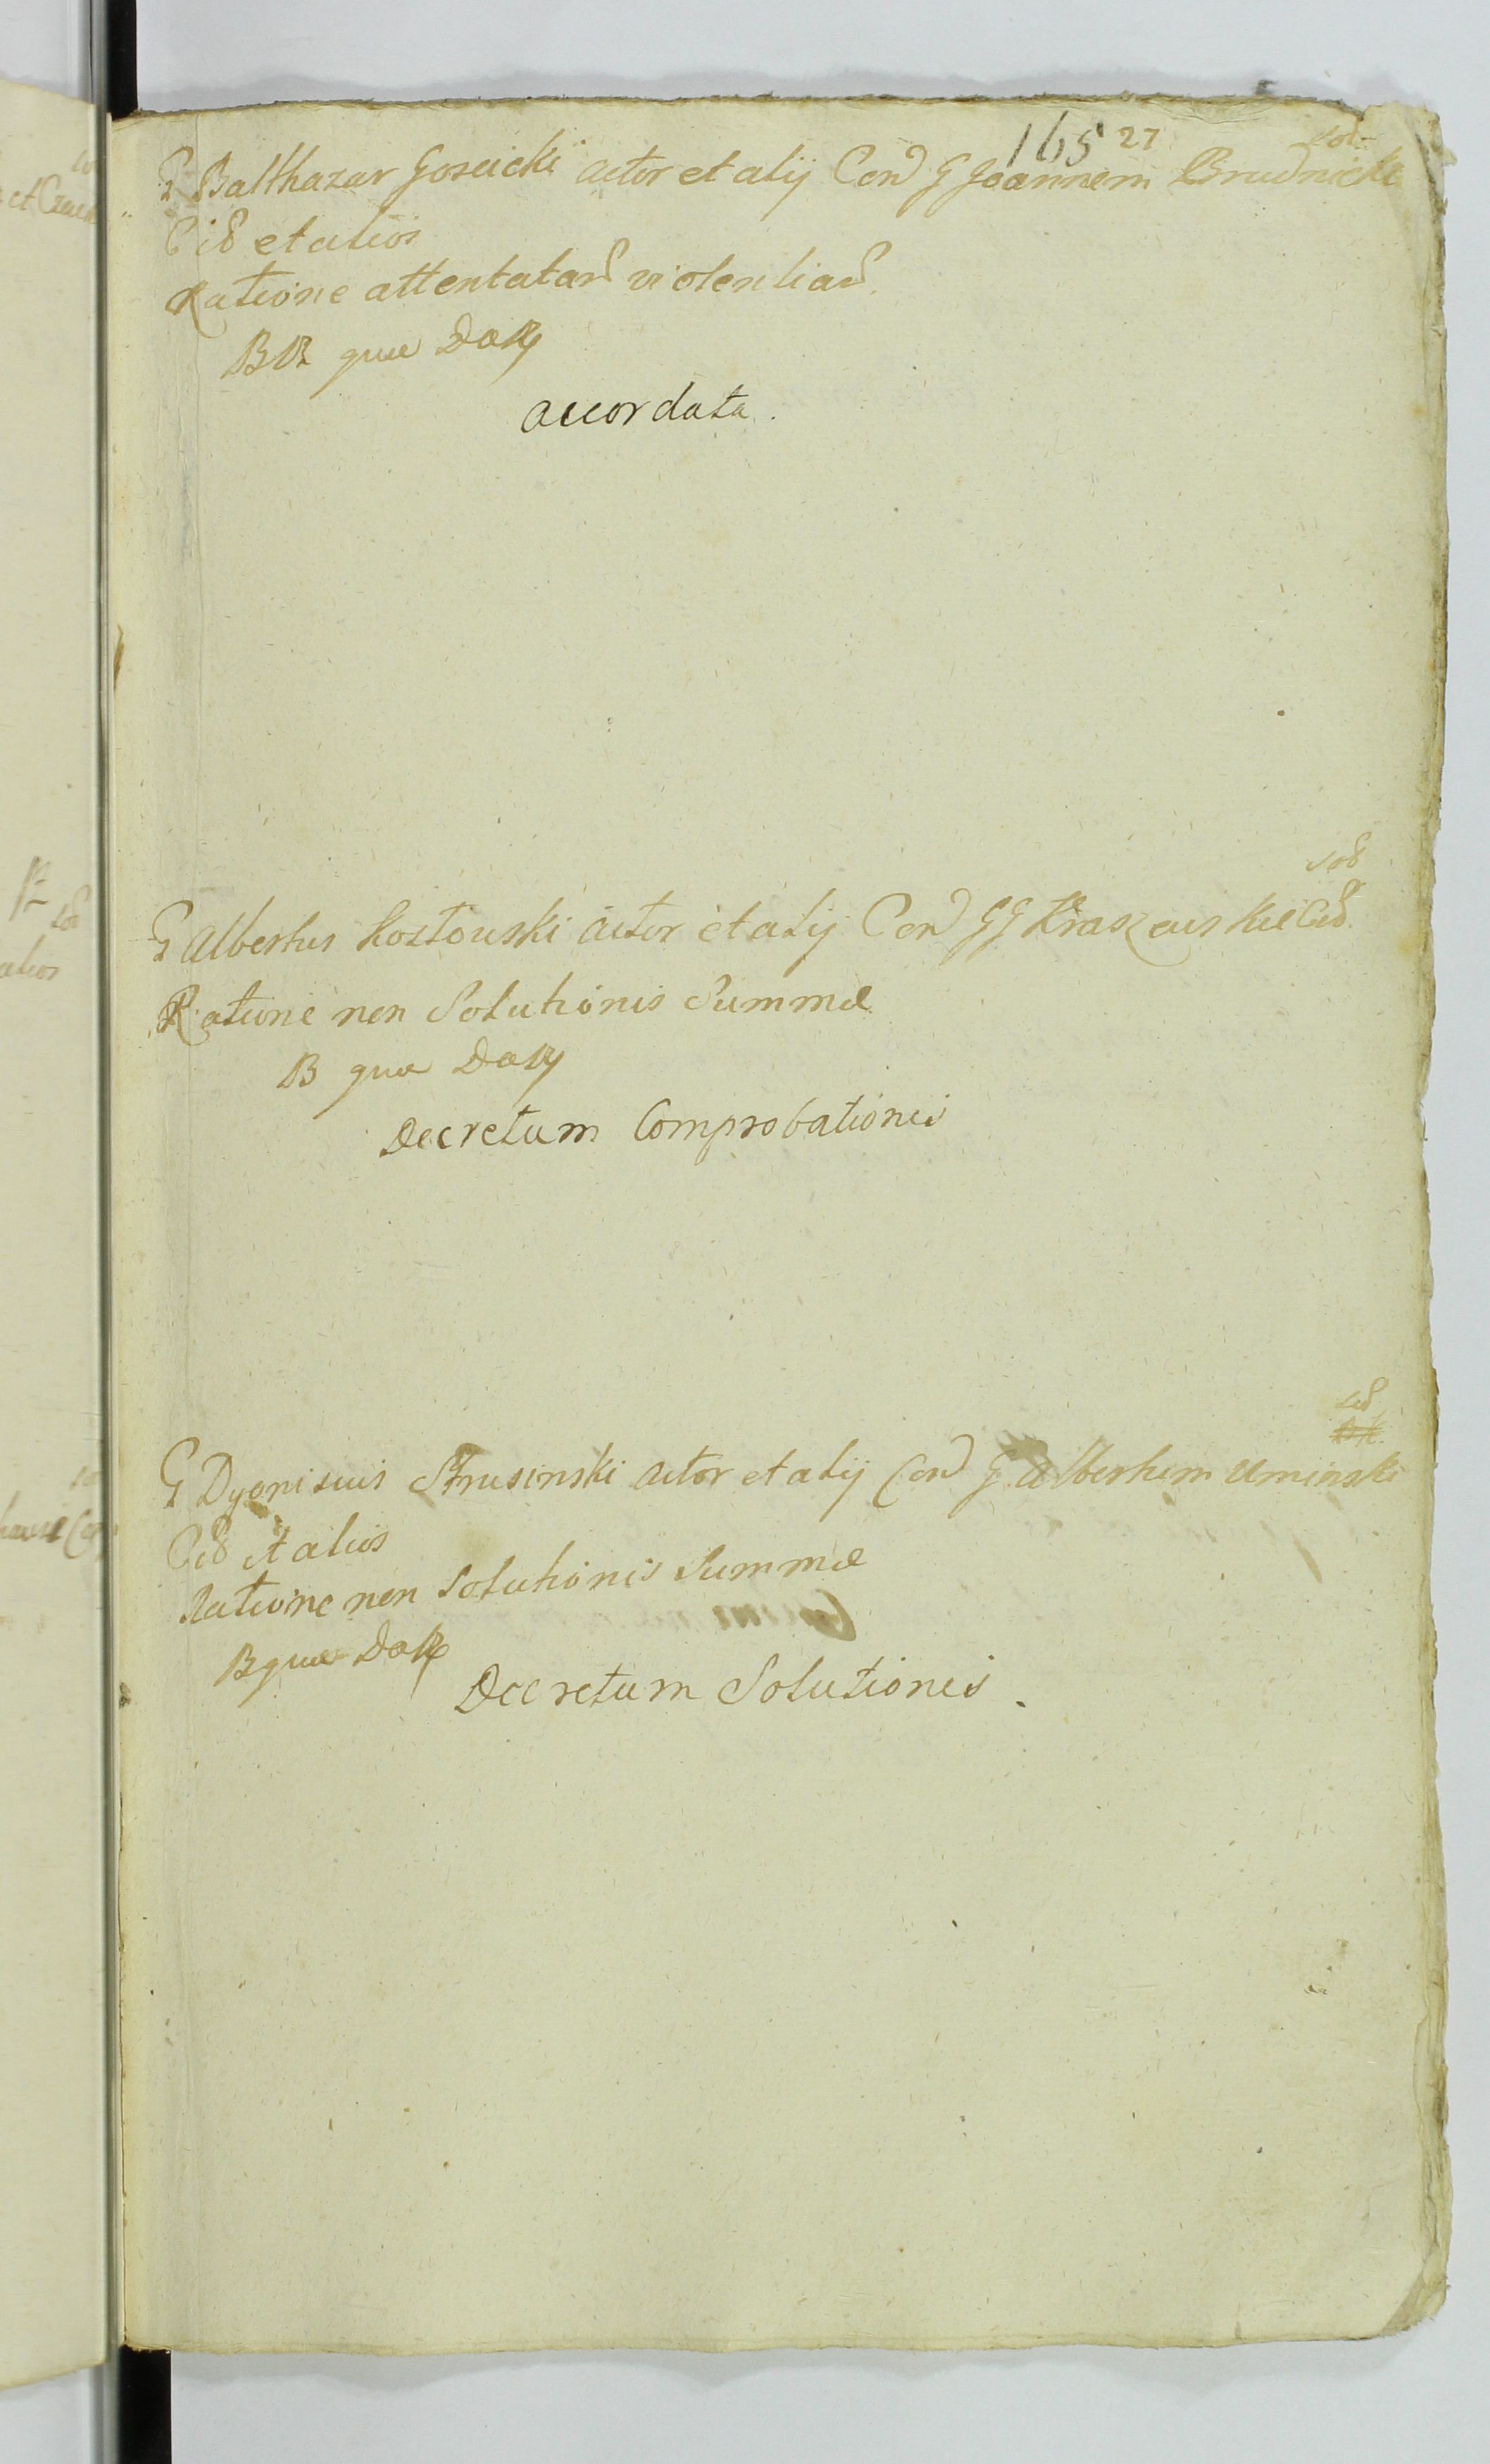 165 27
G Balthazar Goscicki actor et alij Con G Joannem Brudnicki
Cit et alios
Ratione attentatar violentiar
BR quae
accordata.
G Albertus Kostowski actor et alij Con GG Kraszewskie Cit
Ratione non Solutionis Summae
B quae
Decretum Comprobationis
G Dyonisius Strusinski actor et alij Con G Albertum Uminski
Cit et alios
Ratione non Solutionis Summae
B quae
Decretum Solutionis.